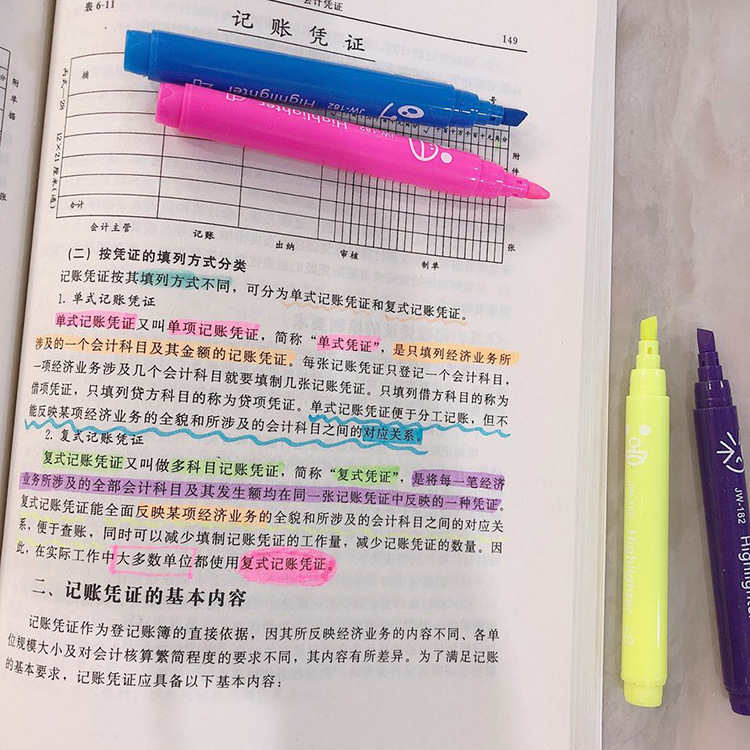 表 6-11
会计凭证
149
记账凭证
摘
号
附件
张
合计
会计主管
记账
出纳
审核
制单
Highlighter
JW-182
Highlighter
JW-182
(二) 按凭证的填列方式分类
记账凭证按其填列方式不同，可分为单式记账凭证和复式记账凭证。
1. 单式记账凭证
单式记账凭证又叫单项记账凭证，简称“单式凭证”，是只填列经济业务所
涉及的一个会计科目及其金额的记账凭证。每张记账凭证只登记一个会计科目，
一项经济业务涉及几个会计科目就要填制几张记账凭证。只填列借方科目的称为
借项凭证，只填列贷方科目的称为贷项凭证。单式记账凭证便于分工记账，但不
能反映某项经济业务的全貌和所涉及的会计科目之间的对应关系。
2. 复式记账凭证
复式记账凭证又叫做多科目记账凭证，简称“复式凭证”，是将每一笔经济
业务所涉及的全部会计科目及其发生额均在同一张记账凭证中反映的一种凭证。
复式记账凭证能全面反映某项经济业务的全貌和所涉及的会计科目之间的对应关
系，便于查账，同时可以减少填制记账凭证的工作量，减少记账凭证的数量。因
此，在实际工作中大多数单位都使用复式记账凭证。
二、记账凭证的基本内容
记账凭证作为登记账簿的直接依据，因其所反映经济业务的内容不同、各单
位规模大小及对会计核算繁简程度的要求不同，其内容有所差异。为了满足记账
的基本要求，记账凭证应具备以下基本内容：
JW-182
Highlighter
JW-182
Highlighter